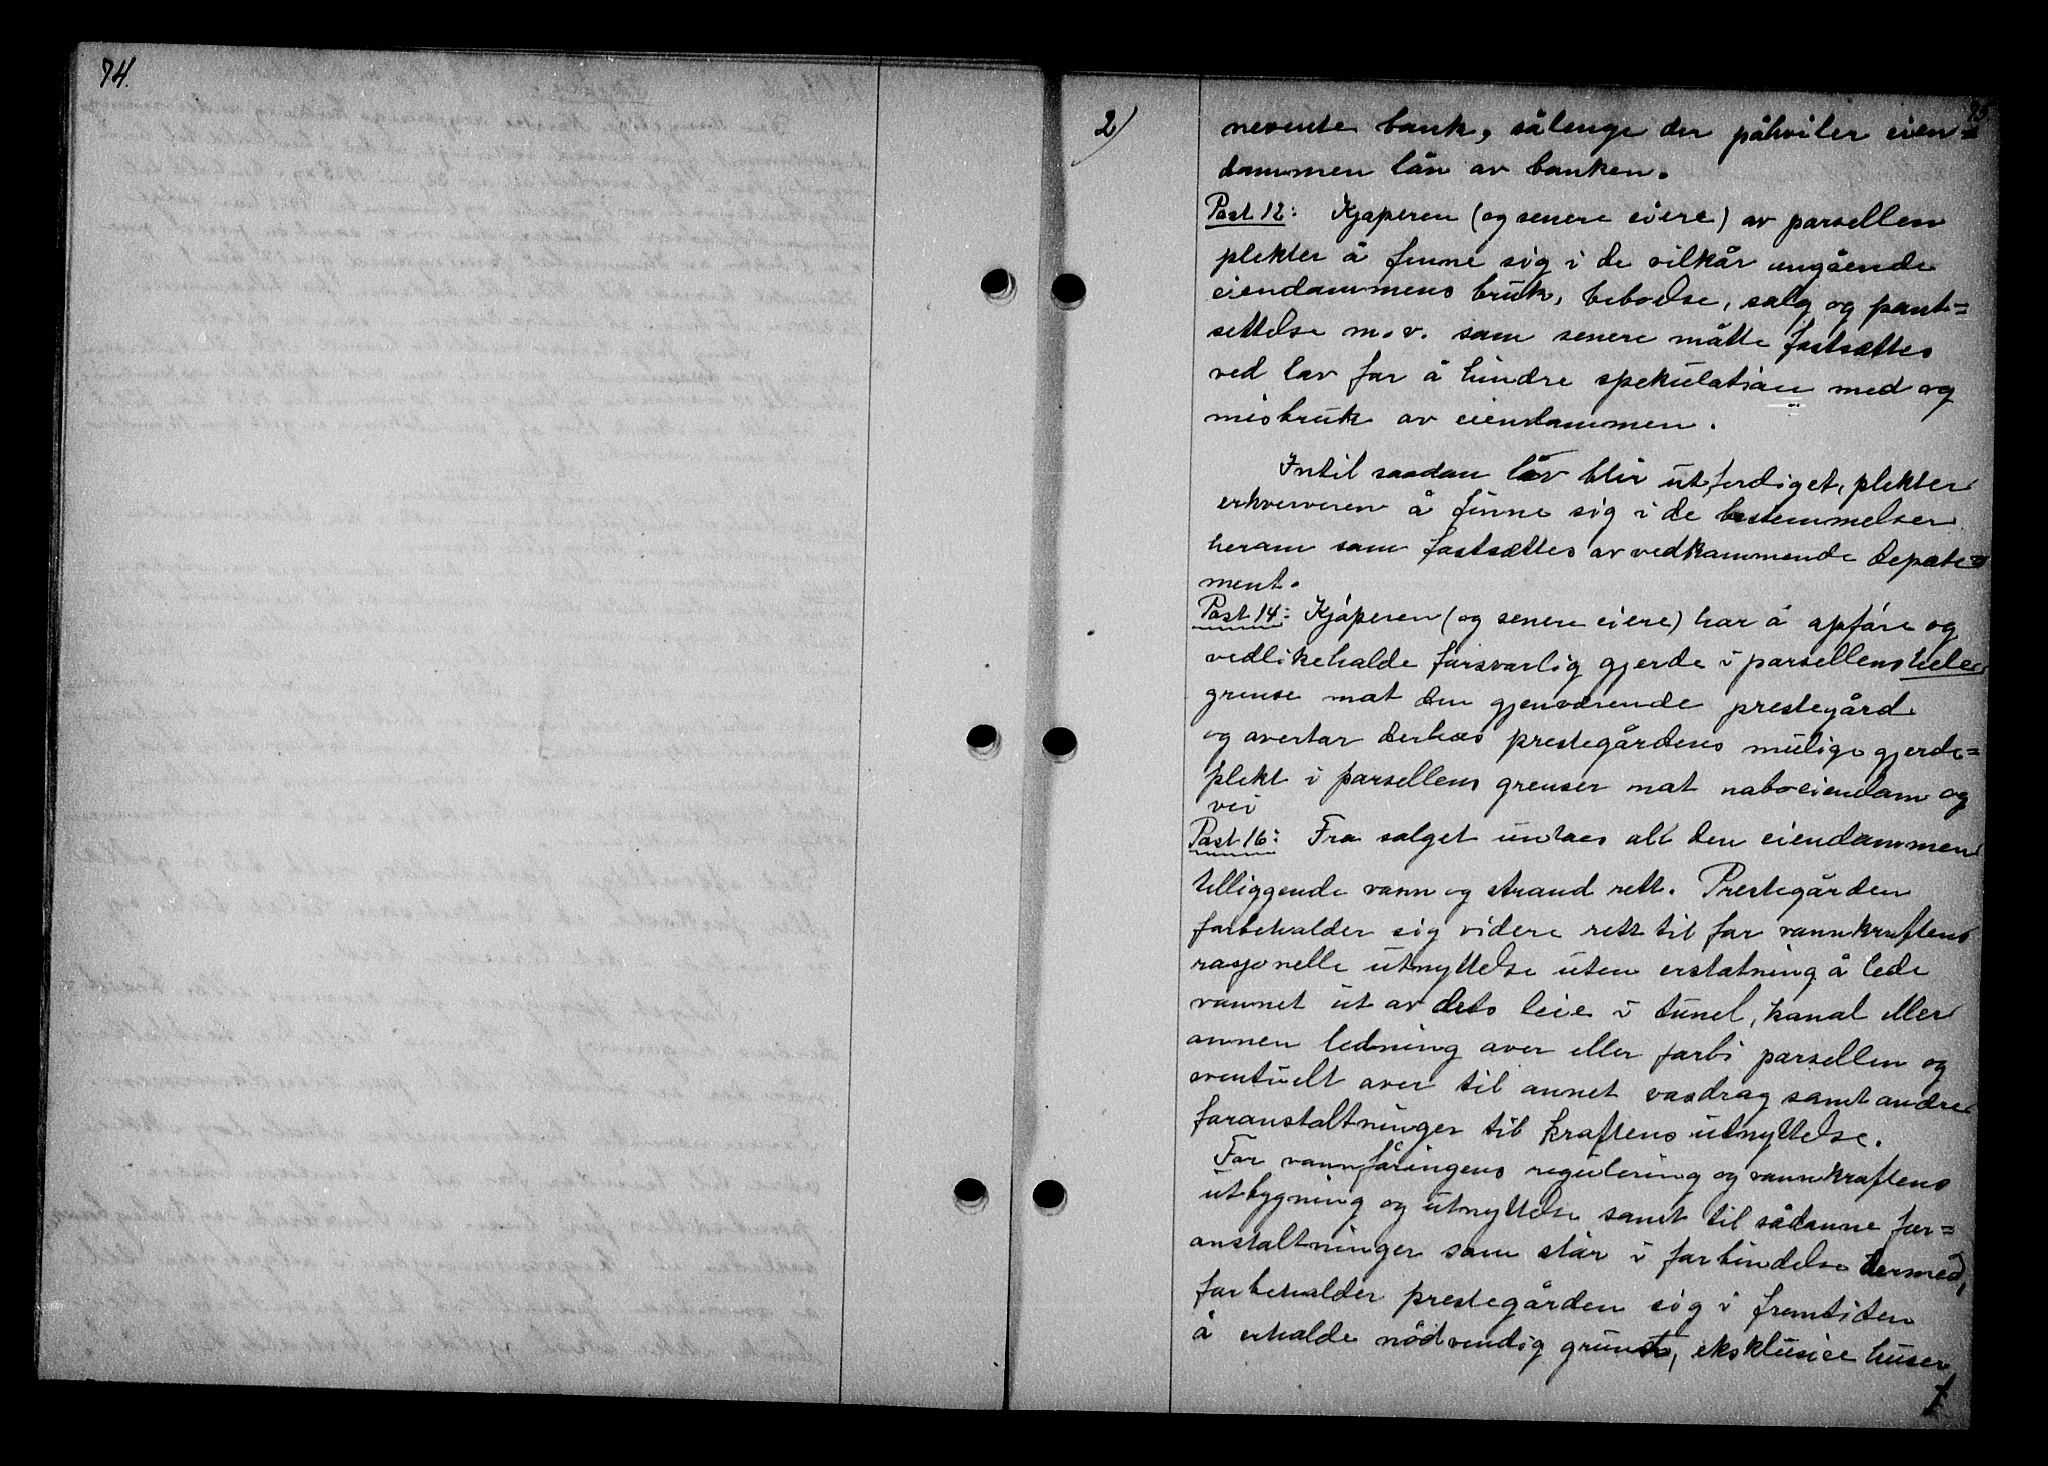 74.
75
2)
nevente bank, sålenge der påhviler eien=
dommen lån av banken.
Post 12: Kjøperen (og senere eiere) av parsellen
plekter å finne sig i de vilkår angående
eiendommens bruk, beboelse, salg og pant=
settelse m.v. som senere måtte fastsættes
ved lov for å hindre spekulation med og
misbruk av eiendommen.
Intil saadan lov blir utferdiget, plekter
erhververen å finne sig i de bestemmelser
herom som fastsættes av vedkommende depate=
ment.
Post 14: Kjøperen (og senere eiere) har å opføre og
vedlikeholde forsvarlig gjerde i parsellens hele
grense mot den gjenværende prestegård
og overtar derhos prestegårdens mulige gjerde=
plekt i parsellens grenser mot naboeiendom og
vei
Post 16: Fra salget untaes alt den eiendommen
tilliggende vann og strand rett. Prestegården
forbeholder sig videre rett til for vannkraftens
rasjonelle utnyttelse uten erstatning å lede
vannet ut av dets leie i tunel, kanal eller
annen ledning over eller forbi parsellen og
eventuelt over til annet vasdrag samt andre
foranstaltninger til kraftens utnyttelse.
For vannføringens regulering og vannkraftens
utbygning og utnyttelse samt til sådanne for=
anstaltninger som står i forbindelse dermed,
forbeholder prestegården sig i fremtiden
å erholde nødvendig grunn, eksklusive huser